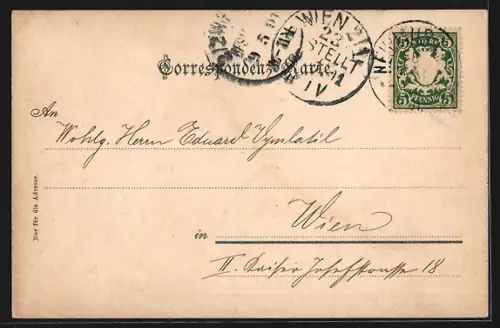 WIEN 2/1
BESTELLT
IV
BAYERN
5 5
PFENNIG
Correspondenz-Karte.
An
Wohlg. Herrn Eduard
Wien
in
II. Kaiser Josefstrasse 18
Nur für die Adresse.